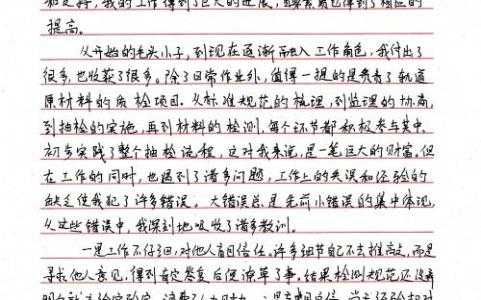 和支持，我的工作得到了巨大的进展，自身素质也得到了相应的
提高。
从开始的毛头小子，到现在逐渐融入工作角色，我付出了
很多，也收获了很多。除了日常作业外，值得一提的是负责了轨道
原材料的质检项目。从标准规范的梳理，到监理的协商，
到抽检的实施，再到材料的检测，每个环节都积极参与其中，
初步实践了整个抽检流程，这对我来说，是一笔巨大的财富。但
在工作的同时，也遇到了诸多问题，工作上的失误和经验的
缺乏使我犯了许多错误。大错误总是先前小错误的集中体现，
从这些错误中，我深刻地吸收了诸多教训。
一是工作不仔细，对他人盲目信任。许多细节自己不去推敲，而是
寻求他人意见，得到肯定答复后便潦草了事。结果检测规范还没弄